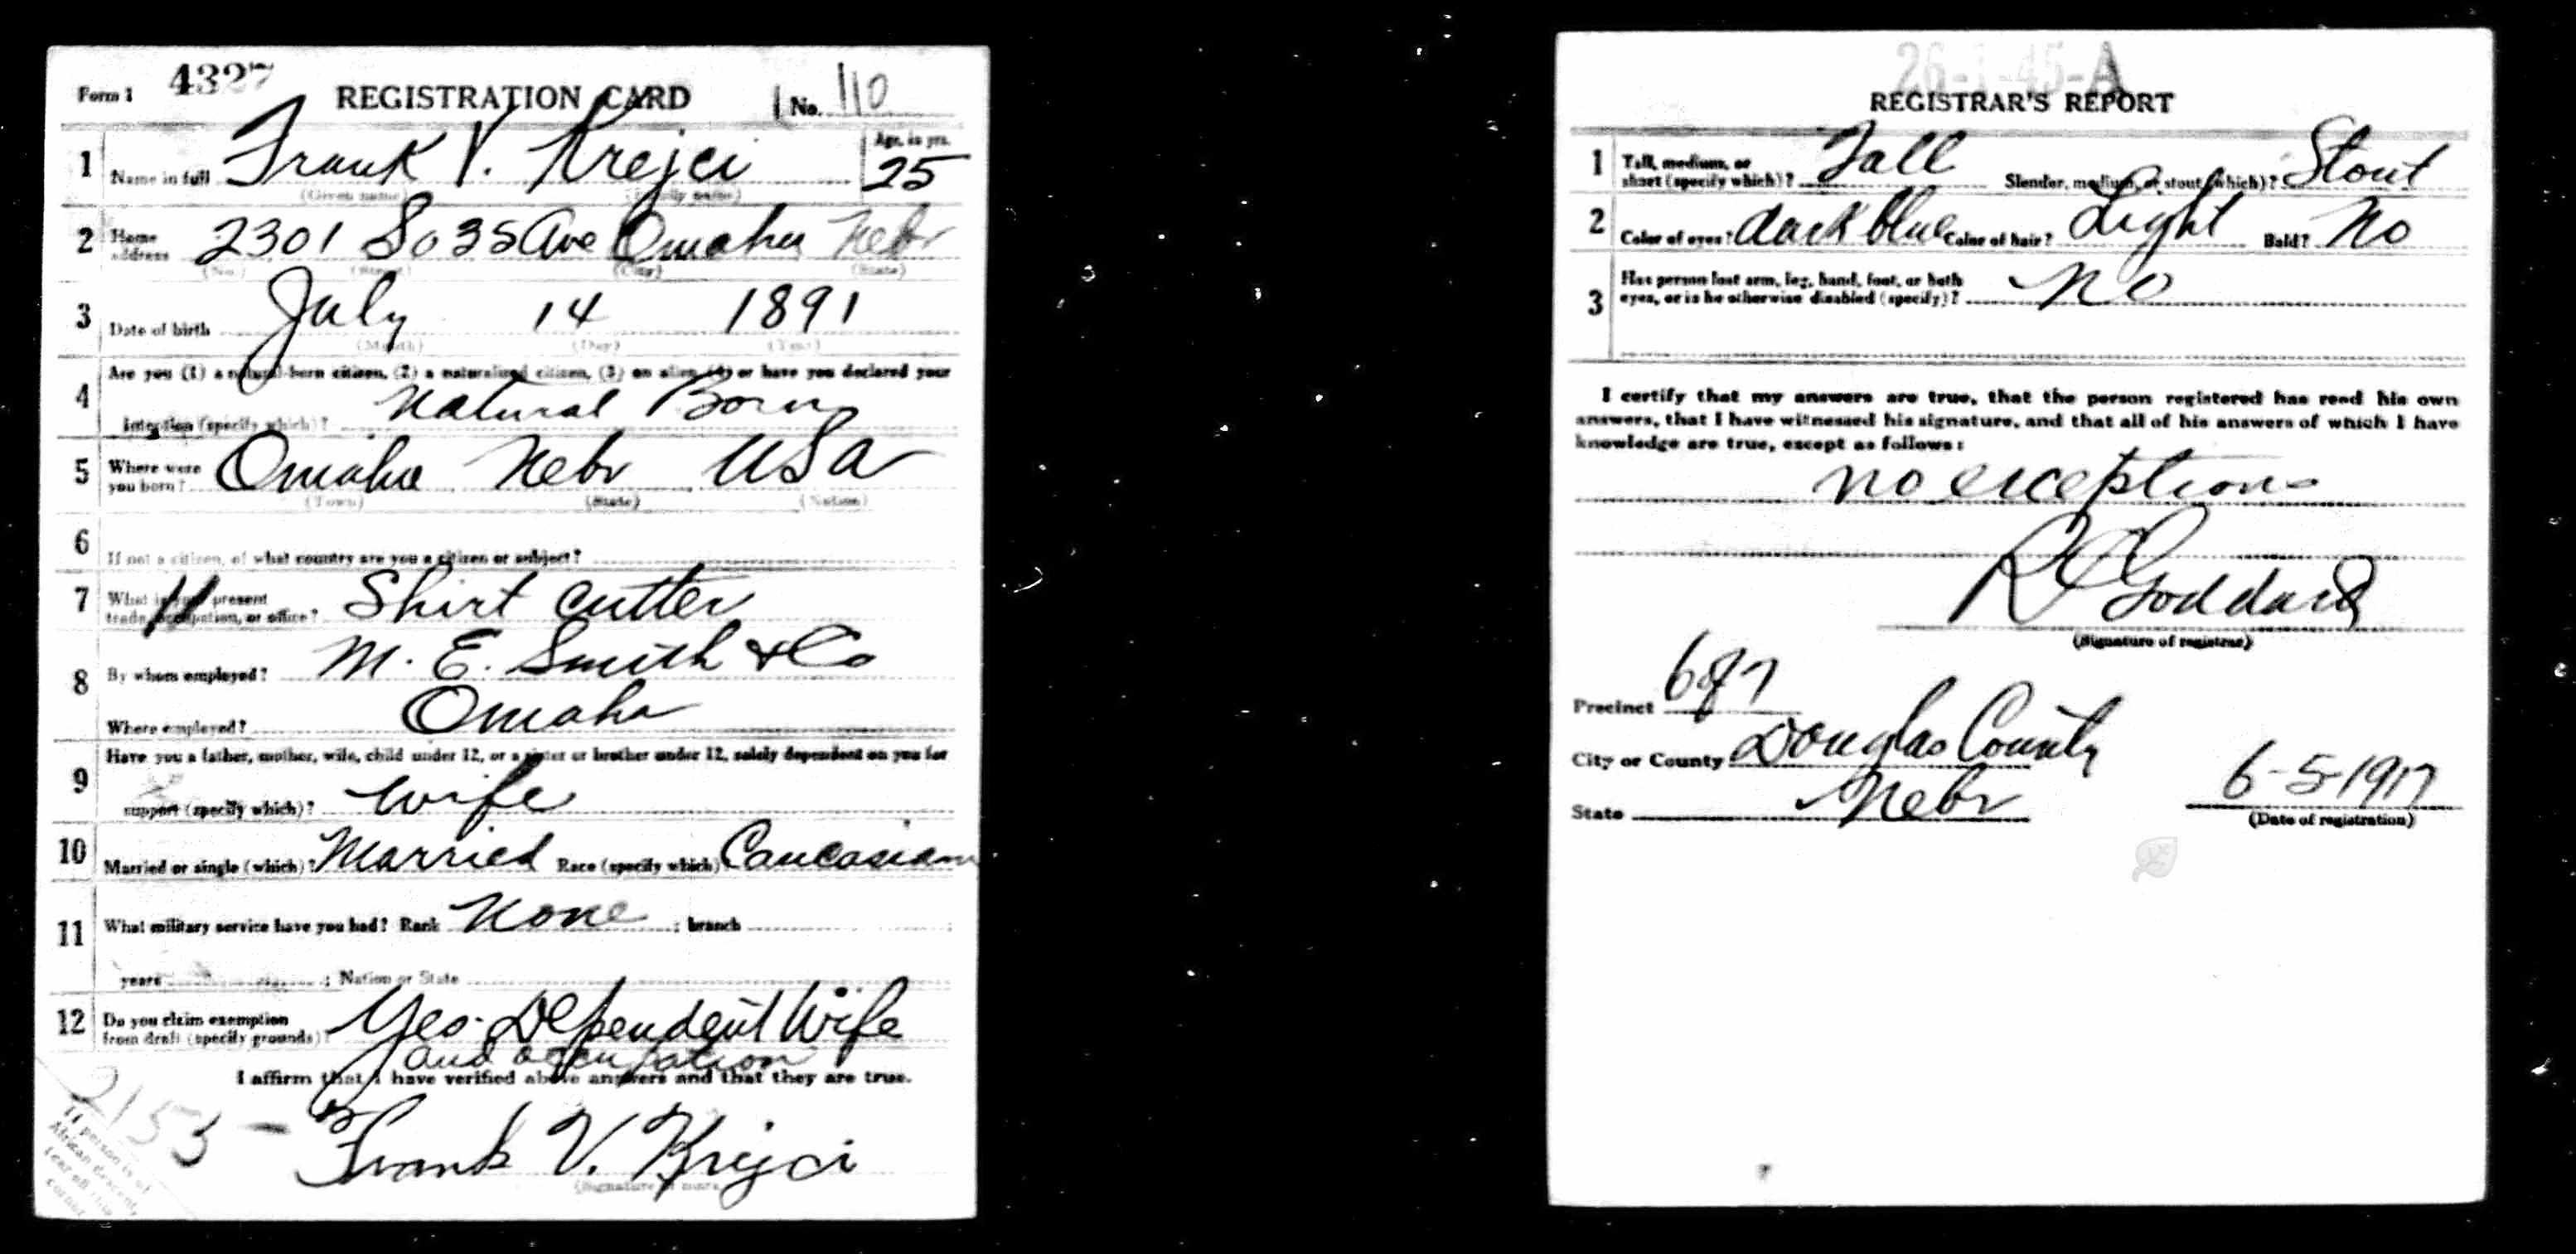 Form 1 4327 REGISTRATION CARD No. 110
1 Name in full Frank V. Krejci Age, in yrs. 25
(Given name) (Family name)
2 Home address 2301 So 35 Ave Omaha Nebr
(No.) (Street) (City) (State)
3 Date of birth July 14 1891
(Month) (Day) (Year)
4 Are you (1) a natural-born citizen, (2) a naturalized citizen, (3) an alien, (4) or have you declared your
intention (specify which)? Natural Born
5 Where were you born? Omaha Nebr USA
(Town) (State) (Nation)
6 If not a citizen, of what country are you a citizen or subject?
7 What is your present trade, occupation, or office? 11 Shirt Cutter
8 By whom employed? M. E. Smith & Co
Where employed? Omaha
9 Have you a father, mother, wife, child under 12, or a sister or brother under 12, solely dependent on you for
support (specify which)? Wife
10 Married or single (which)? Married Race (specify which) Caucasian
11 What military service have you had? Rank None ; branch ;
years ; Nation or State
12 Do you claim exemption from draft (specify grounds)? Yes - Dependent Wife
and occupation
I affirm that I have verified above answers and that they are true.
2153 -
Frank V. Krejci
(Signature or mark)
If person is of
African descent,
tear off this
corner
26-1-45-A
REGISTRAR'S REPORT
1 Tall, medium, or short (specify which)? Tall Slender, medium, or stout (which)? Stout
2 Color of eyes? dark blue Color of hair? Light Bald? No
3 Has person lost arm, leg, hand, foot, or both
eyes, or is he otherwise disabled (specify)? No
I certify that my answers are true, that the person registered has read his own
answers, that I have witnessed his signature, and that all of his answers of which I have
knowledge are true, except as follows:
no exceptions
Goddard
(Signature of registrar)
Precinct
City or County Douglas County
State Nebr 6-5-1917
(Date of registration)